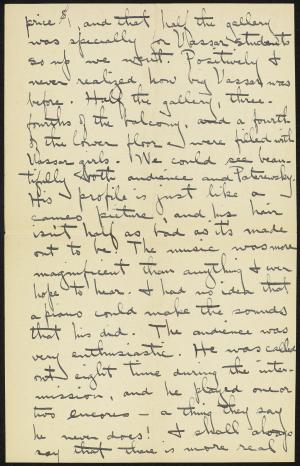 price $, and that half the gallery
was specially for Vassar students
so up we went. Positively I
never realized how big Vassar was
before. Half the gallery, three-
fourths of the balcony, and a fourth
of the lower floor were filled with
Vassar girls. We could see beau-
tifully both audience and Paterewsky.
His profile is just like a
cameo picture, and his hair
isn't half as bad as its made
out to be. The music was more
magnificent than anything I ever
hope to hear. I had no idea that
a piano could make the sounds
that his did. The audience was
very enthusiastic. He was called
out eight time during the inter-
mission, and he played one or
two encores - a thing they say
he never does! I shall always
say that there is more real